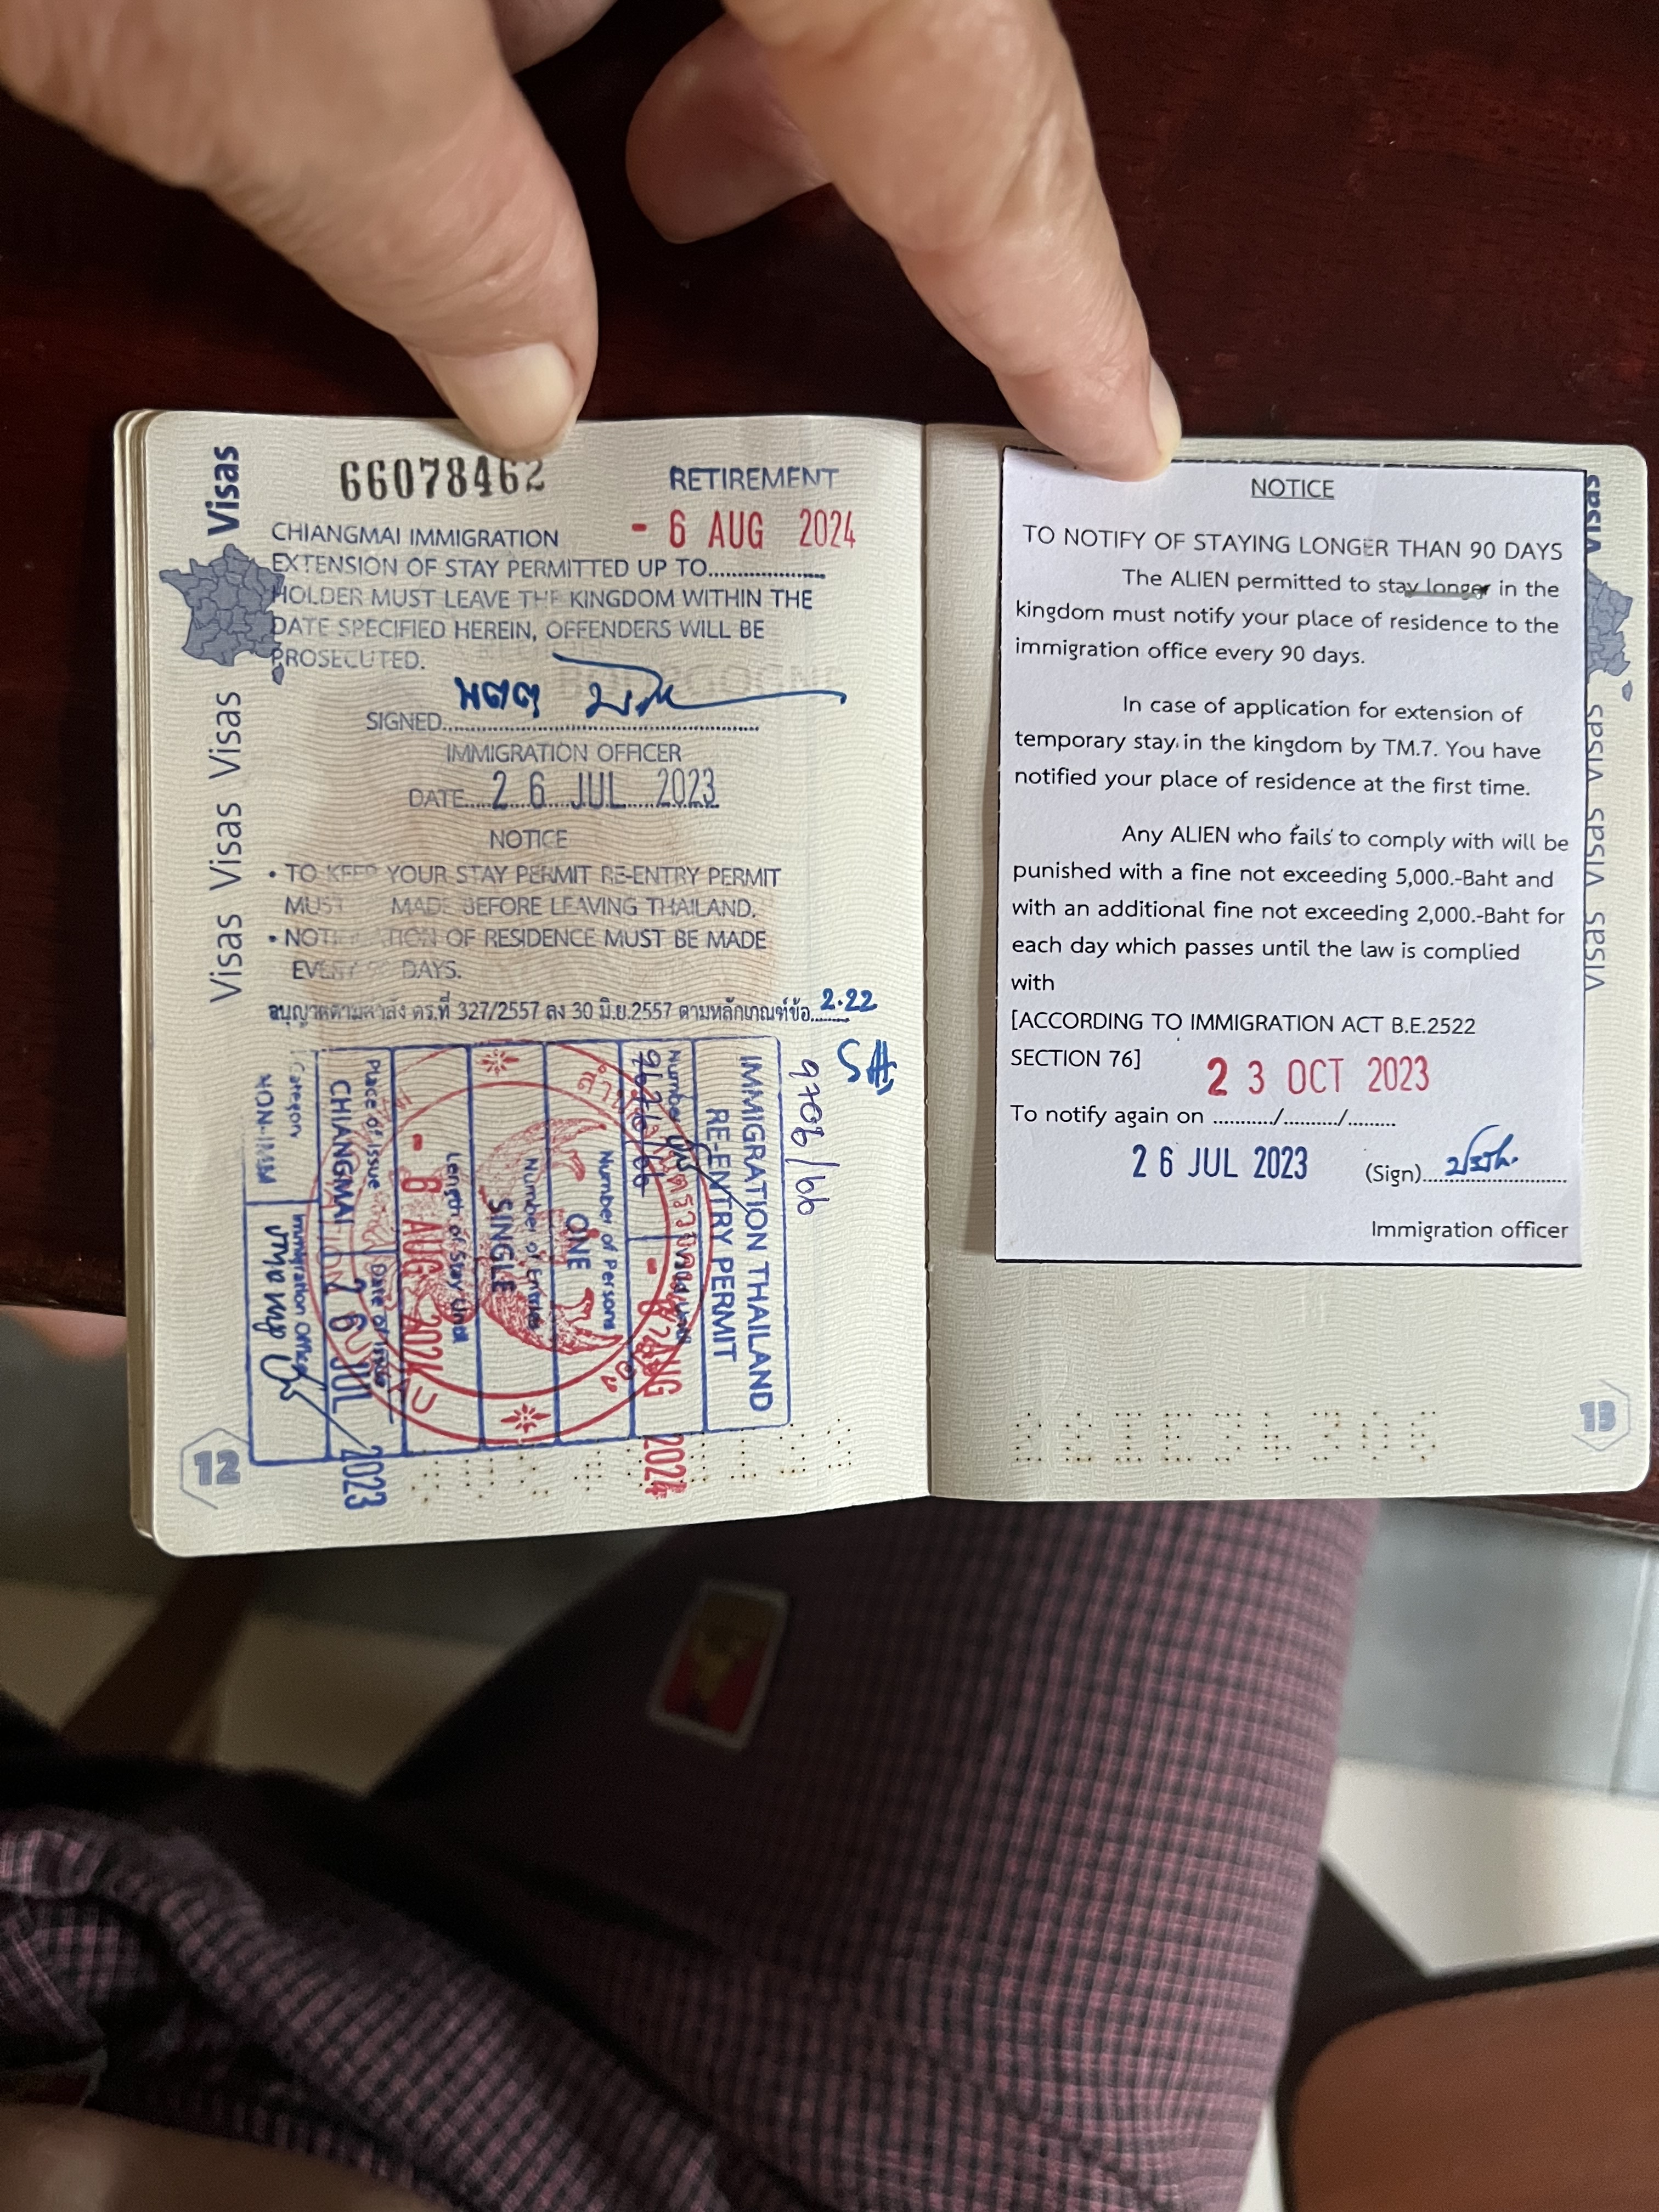 Visas
66078462
RETIREMENT
CHIANGMAI IMMIGRATION
- 6 AUG 2024
EXTENSION OF STAY PERMITTED UP TO....................
HOLDER MUST LEAVE THE KINGDOM WITHIN THE
DATE SPECIFIED HEREIN, OFFENDERS WILL BE
PROSECUTED.
SIGNED
IMMIGRATION OFFICER
DATE....26 JUL 2023
NOTICE
• TO KEEP YOUR STAY PERMIT RE-ENTRY PERMIT
MUST MADE BEFORE LEAVING THAILAND.
• NOTIFICATION OF RESIDENCE MUST BE MADE
EVERY 90 DAYS.
อนุญาตตามคำสั่ง ตร.ที่ 327/2557 ลง 30 มิ.ย.2557 ตามหลักเกณฑ์ข้อ 2.22
Visas Visas Visas
9708/66
IMMIGRATION THAILAND
RE-ENTRY PERMIT
Number
9626/66
- 6 AUG 2024
Number of Persons
ONE
Number of Entries
SINGLE
Length of Stay Until
- 6 AUG 2024
Place of Issue
Date of Issue
CHIANGMAI
26 JUL 2023
Category
Immigration Officer
NON-IMM
12
NOTICE
TO NOTIFY OF STAYING LONGER THAN 90 DAYS
The ALIEN permitted to stay longer in the
kingdom must notify your place of residence to the
immigration office every 90 days.
In case of application for extension of
temporary stay in the kingdom by TM.7. You have
notified your place of residence at the first time.
Any ALIEN who fails to comply with will be
punished with a fine not exceeding 5,000.-Baht and
with an additional fine not exceeding 2,000.-Baht for
each day which passes until the law is complied
with
[ACCORDING TO IMMIGRATION ACT B.E.2522
SECTION 76]
23 OCT 2023
To notify again on .........../.........../.........
26 JUL 2023
(Sign)
Immigration officer
Visas Visas Visas Visas
13